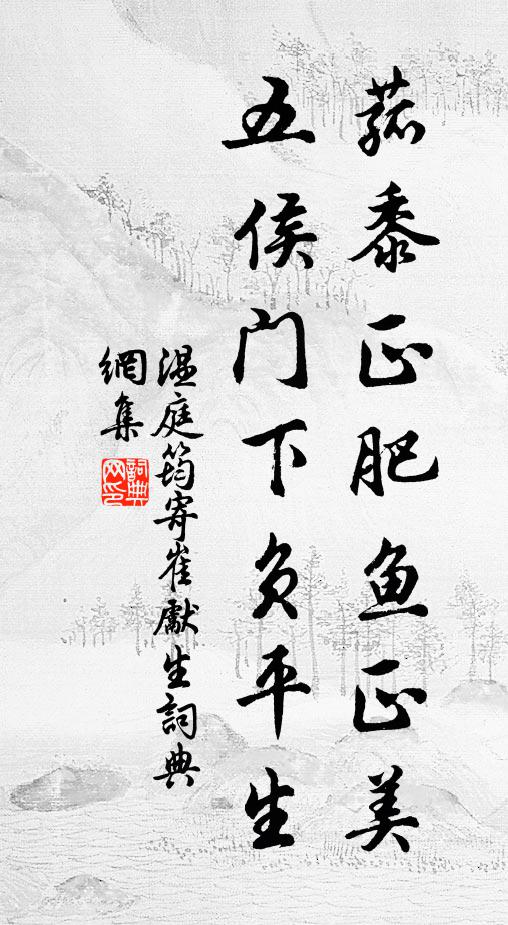 菰黍正肥鱼正美
五侯门下负平生
温庭筠寄崔獻生詞典
網集
詞典
网印